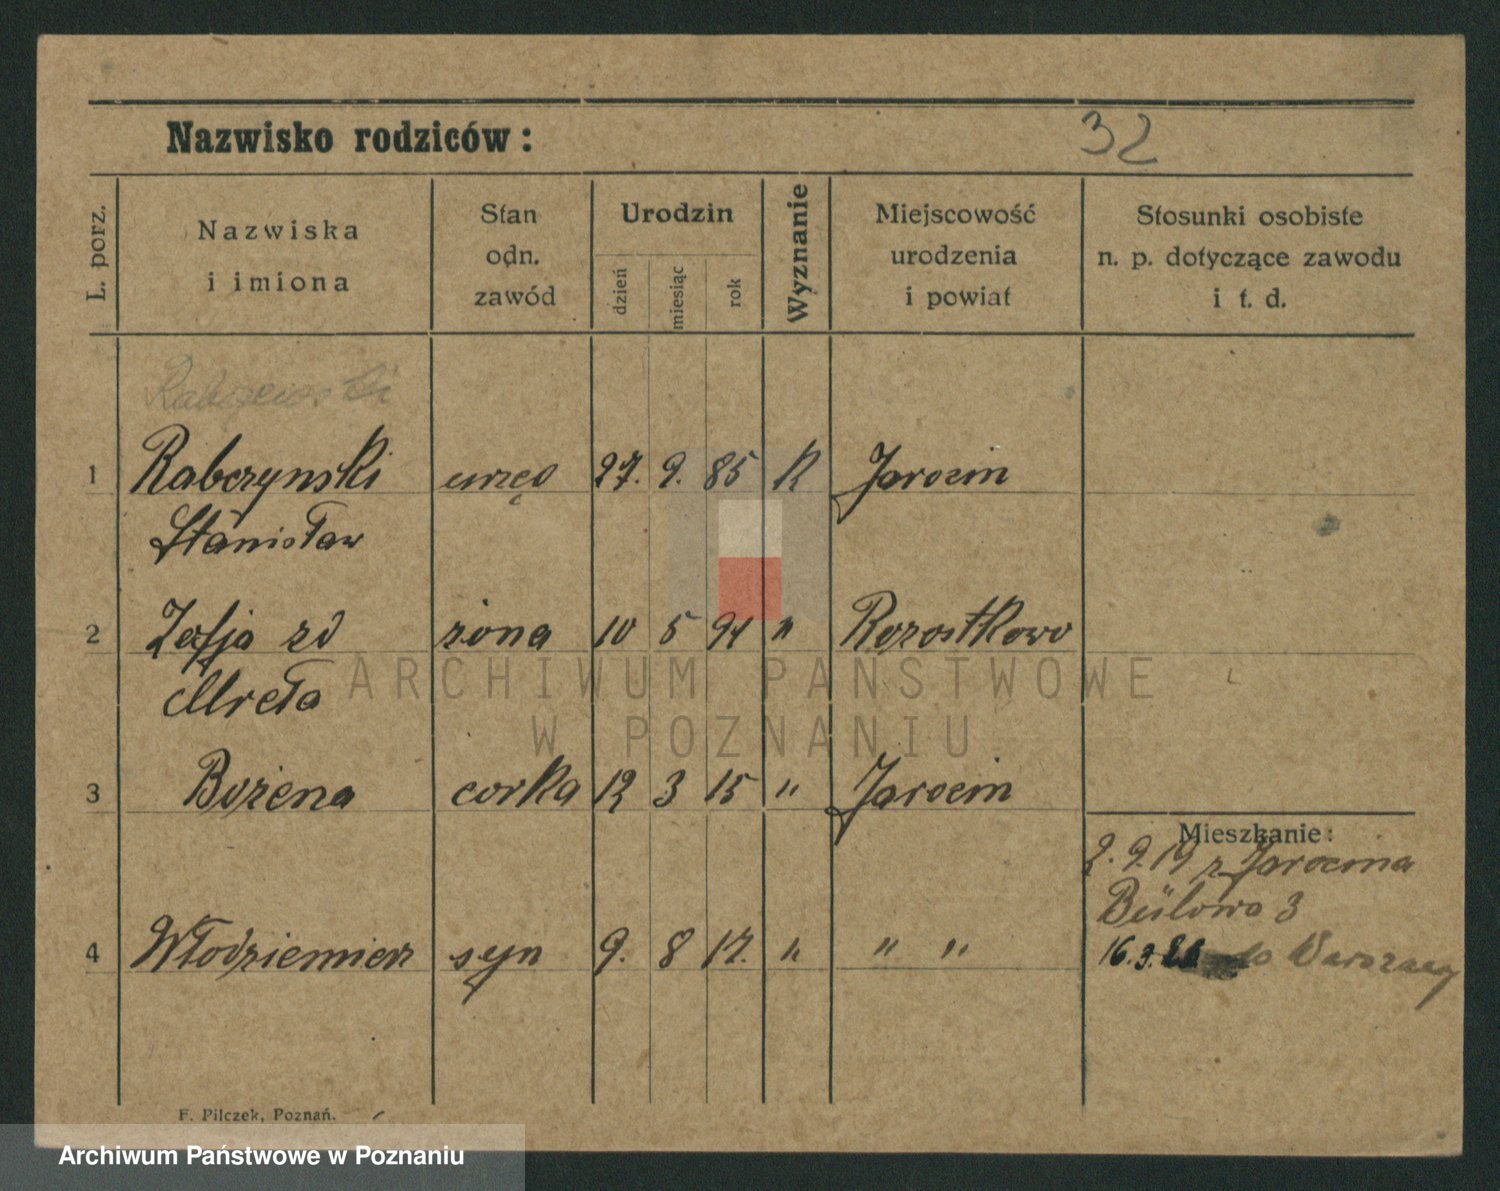 Nazwisko rodziców:
32
L. porz.
Nazwiska
i imiona
Stan
odn.
zawód
Urodzin
dzień
miesiąc
rok
Wyznanie
Miejscowość
urodzenia
i powiat
Stosunki osobiste
n. p. dotyczące zawodu
i t. d.
1 Rabczynski urzęd 27. 9. 85 K Jarocin
Stanisław
2 Zofja zd żona 10 5 94 " Rozostkowo
Mreła
ARCHIWUM PAŃSTWOWE
W POZNANIU
3 Bożena corka 12 3 15 " Jarocin
Mieszkanie:
2.9.19 z Jarocina
Bülowa 3
4 Włodziemierz syn 9. 8 17. " " "
16.3. do Warszawy
F. Pilczek, Poznań.
Archiwum Państwowe w Poznaniu